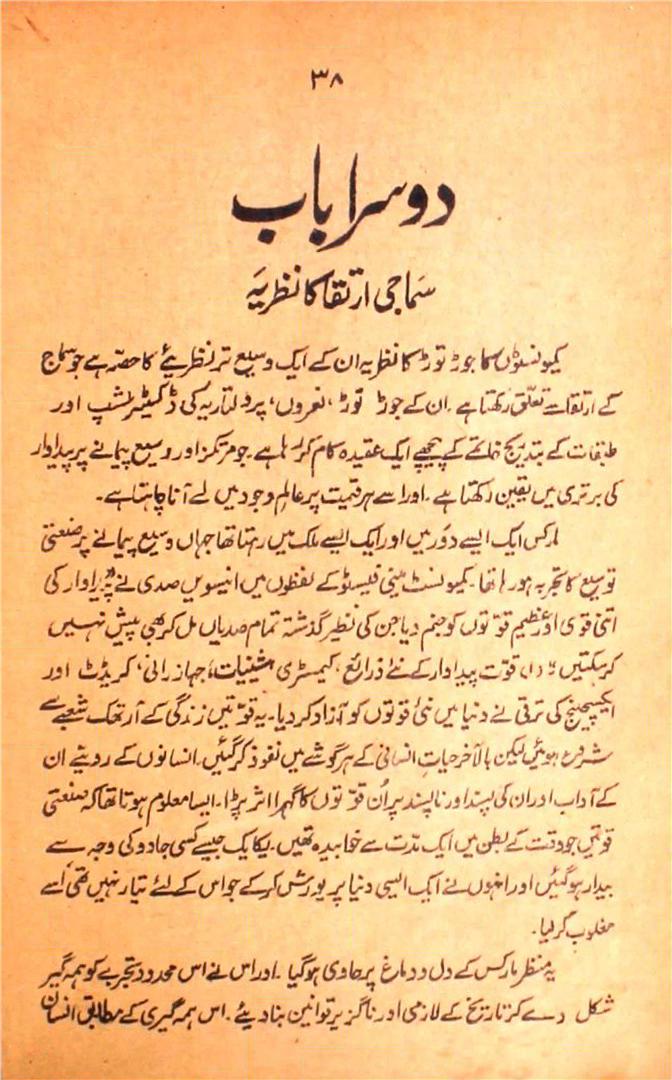 ۳۸
دوسرا باب
سماجی ارتقا کا نظریہ
کمیونسٹوں کا جوڑ توڑ کا نظریہ ان کے ایک وسیع تر نظریئے کا حصہ ہے جو سماج
کے ارتقا سے تعلق رکھتا ہے۔ ان کے جوڑ توڑ، نعروں، پرولتاریہ کی ڈکٹیٹرشپ اور
طبقات کے بتدریج خاتمے کے پیچھے ایک عقیدہ کام کر رہا ہے۔ جو مرتکز اور وسیع پیمانے پر پیداوار
کی برتری میں یقین رکھتا ہے۔ اور اسے ہر قیمت پر عالم وجود میں لے آنا چاہتا ہے۔
مارکس ایک ایسے دَور میں اور ایک ایسے ملک میں رہتا تھا جہاں وسیع پیمانے پر صنعتی
توسیع کا تجربہ ہو رہا تھا۔ کمیونسٹ مینی فیسٹو کے لفظوں میں انیسویں صدی نے "پیداوار کی
اتنی قوی اور عظیم قوتوں کو جنم دیا جن کی نظیر گذشتہ تمام صدیاں مل کر بھی پیش نہیں
کر سکتیں" (۱) قوت پیداوار کے نئے ذرائع، کیمسٹری مشینیات، جہاز رانی، کریڈٹ اور
ایکسچینج کی ترقی نے دنیا میں نئی قوتوں کو آزاد کر دیا۔ یہ قوتیں زندگی کے آرتھک شعبے سے
شروع ہوئیں لیکن بالآخر حیاتِ انسانی کے ہر گوشے میں نفوذ کر گئیں۔ انسانوں کے رویئے ان
کے آداب اور ان کی پسند اور ناپسند پر اُن قوتوں کا گہرا اثر پڑا۔ ایسا معلوم ہوتا تھا کہ صنعتی
قوتیں جو وقت کے بطن میں ایک مدّت سے خوابیدہ تھیں۔ یکایک جیسے کسی جادو کی وجہ سے
بیدار ہو گئیں اور انہوں نے ایک ایسی دنیا پر یورش کر کے جو اس کے لئے تیار نہیں تھی اُسے
مغلوب کر لیا۔
یہ منظر مارکس کے دل و دماغ پر حاوی ہو گیا۔ اور اس نے اس محدود تجربے کو ہمہ گیر
شکل دے کر تاریخ کے لازمی اور ناگزیر قوانین بنا دیئے۔ اس ہمہ گیری کے مطابق انسان